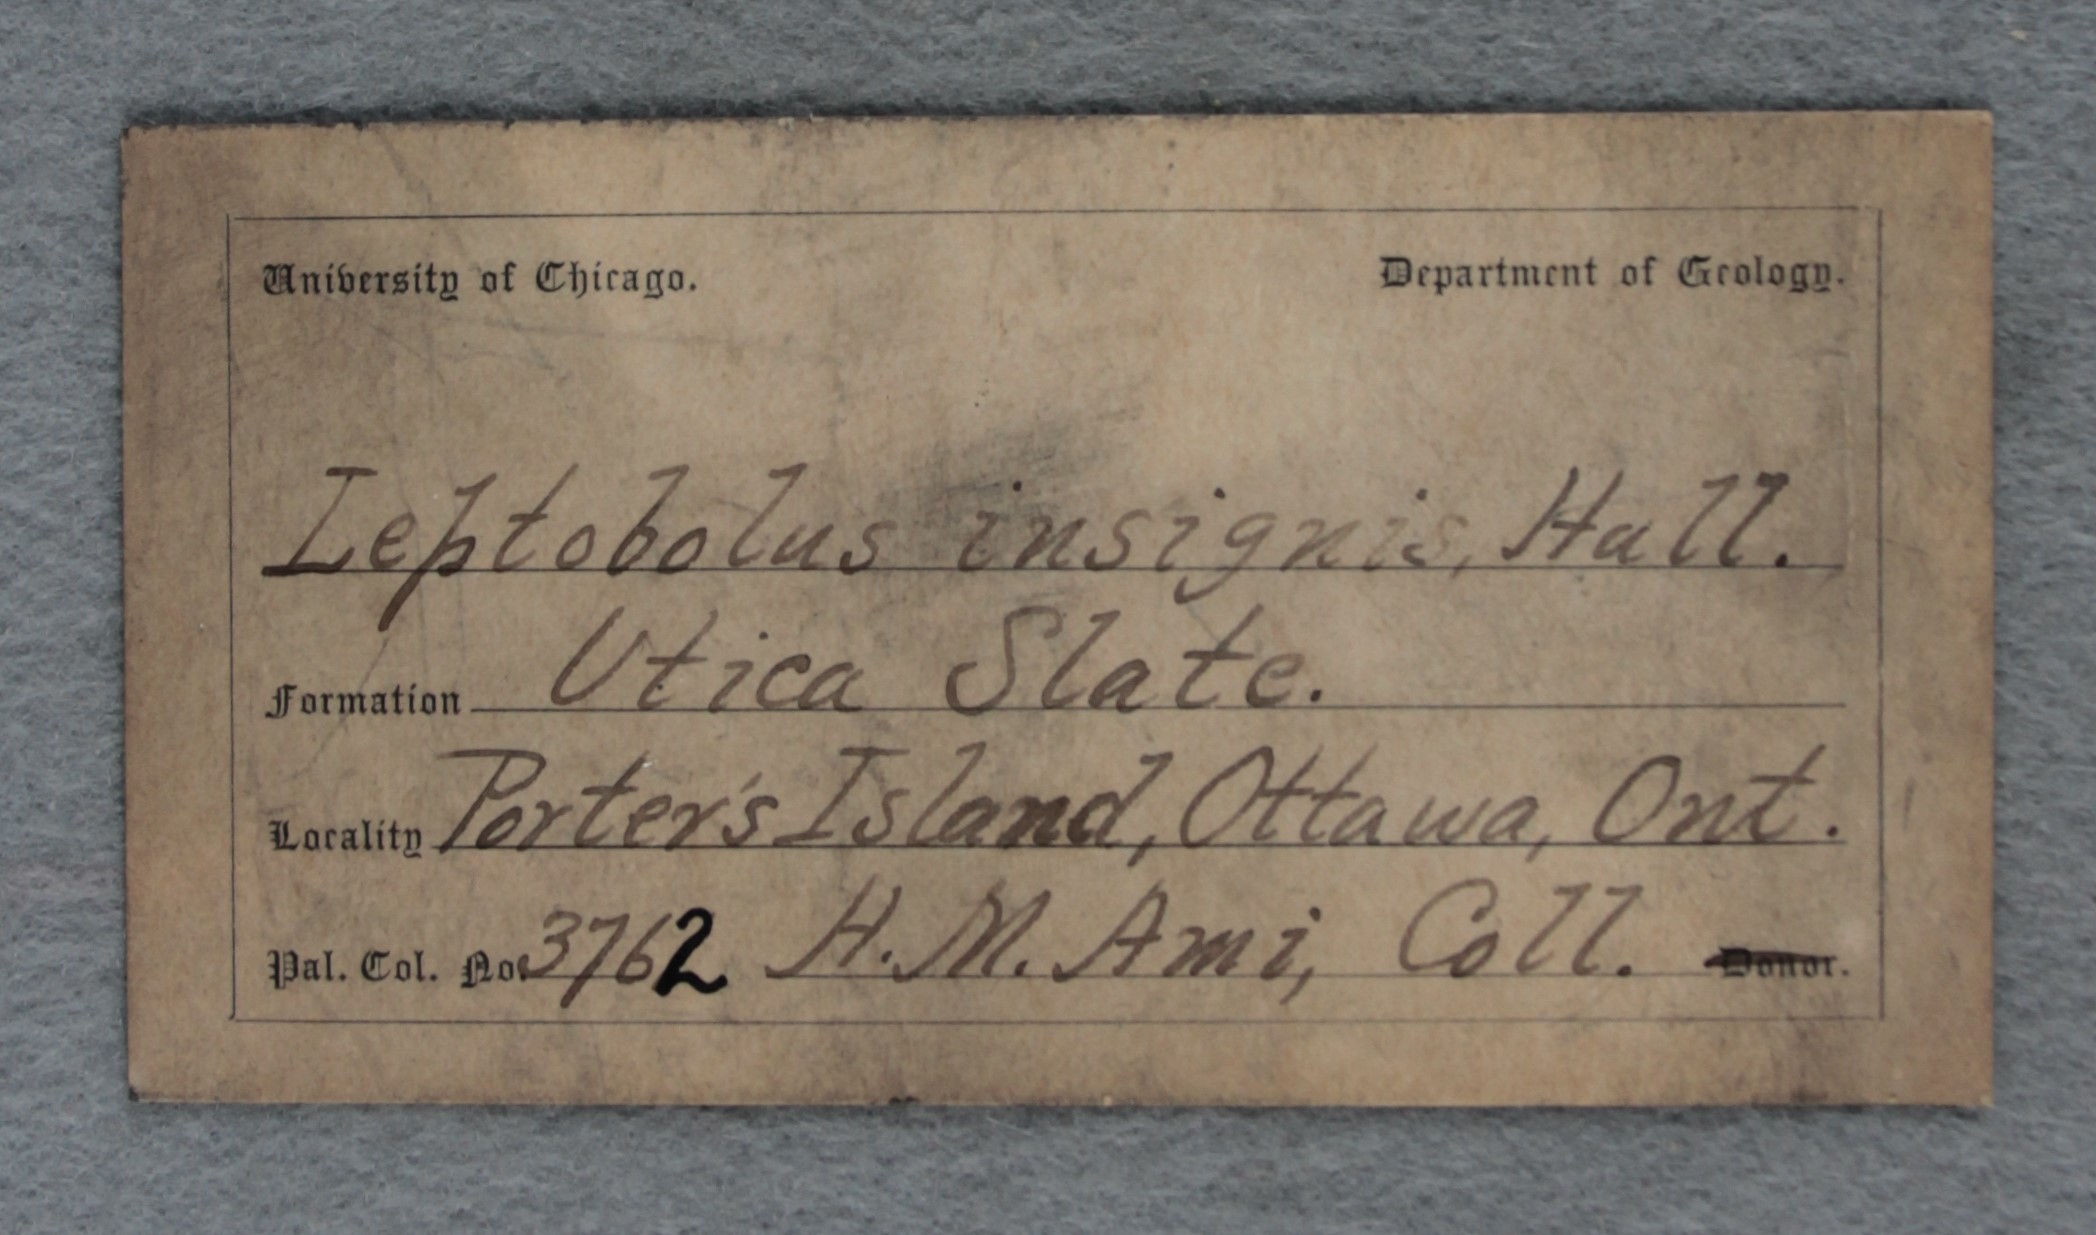 University of Chicago. Department of Geology.
Leptobolus insignis, Hall.
Formation Utica Slate.
Locality Porter's Island, Ottawa, Ont.
Pal. Col. No. 3762 H. M. Ami, Coll. Donor.